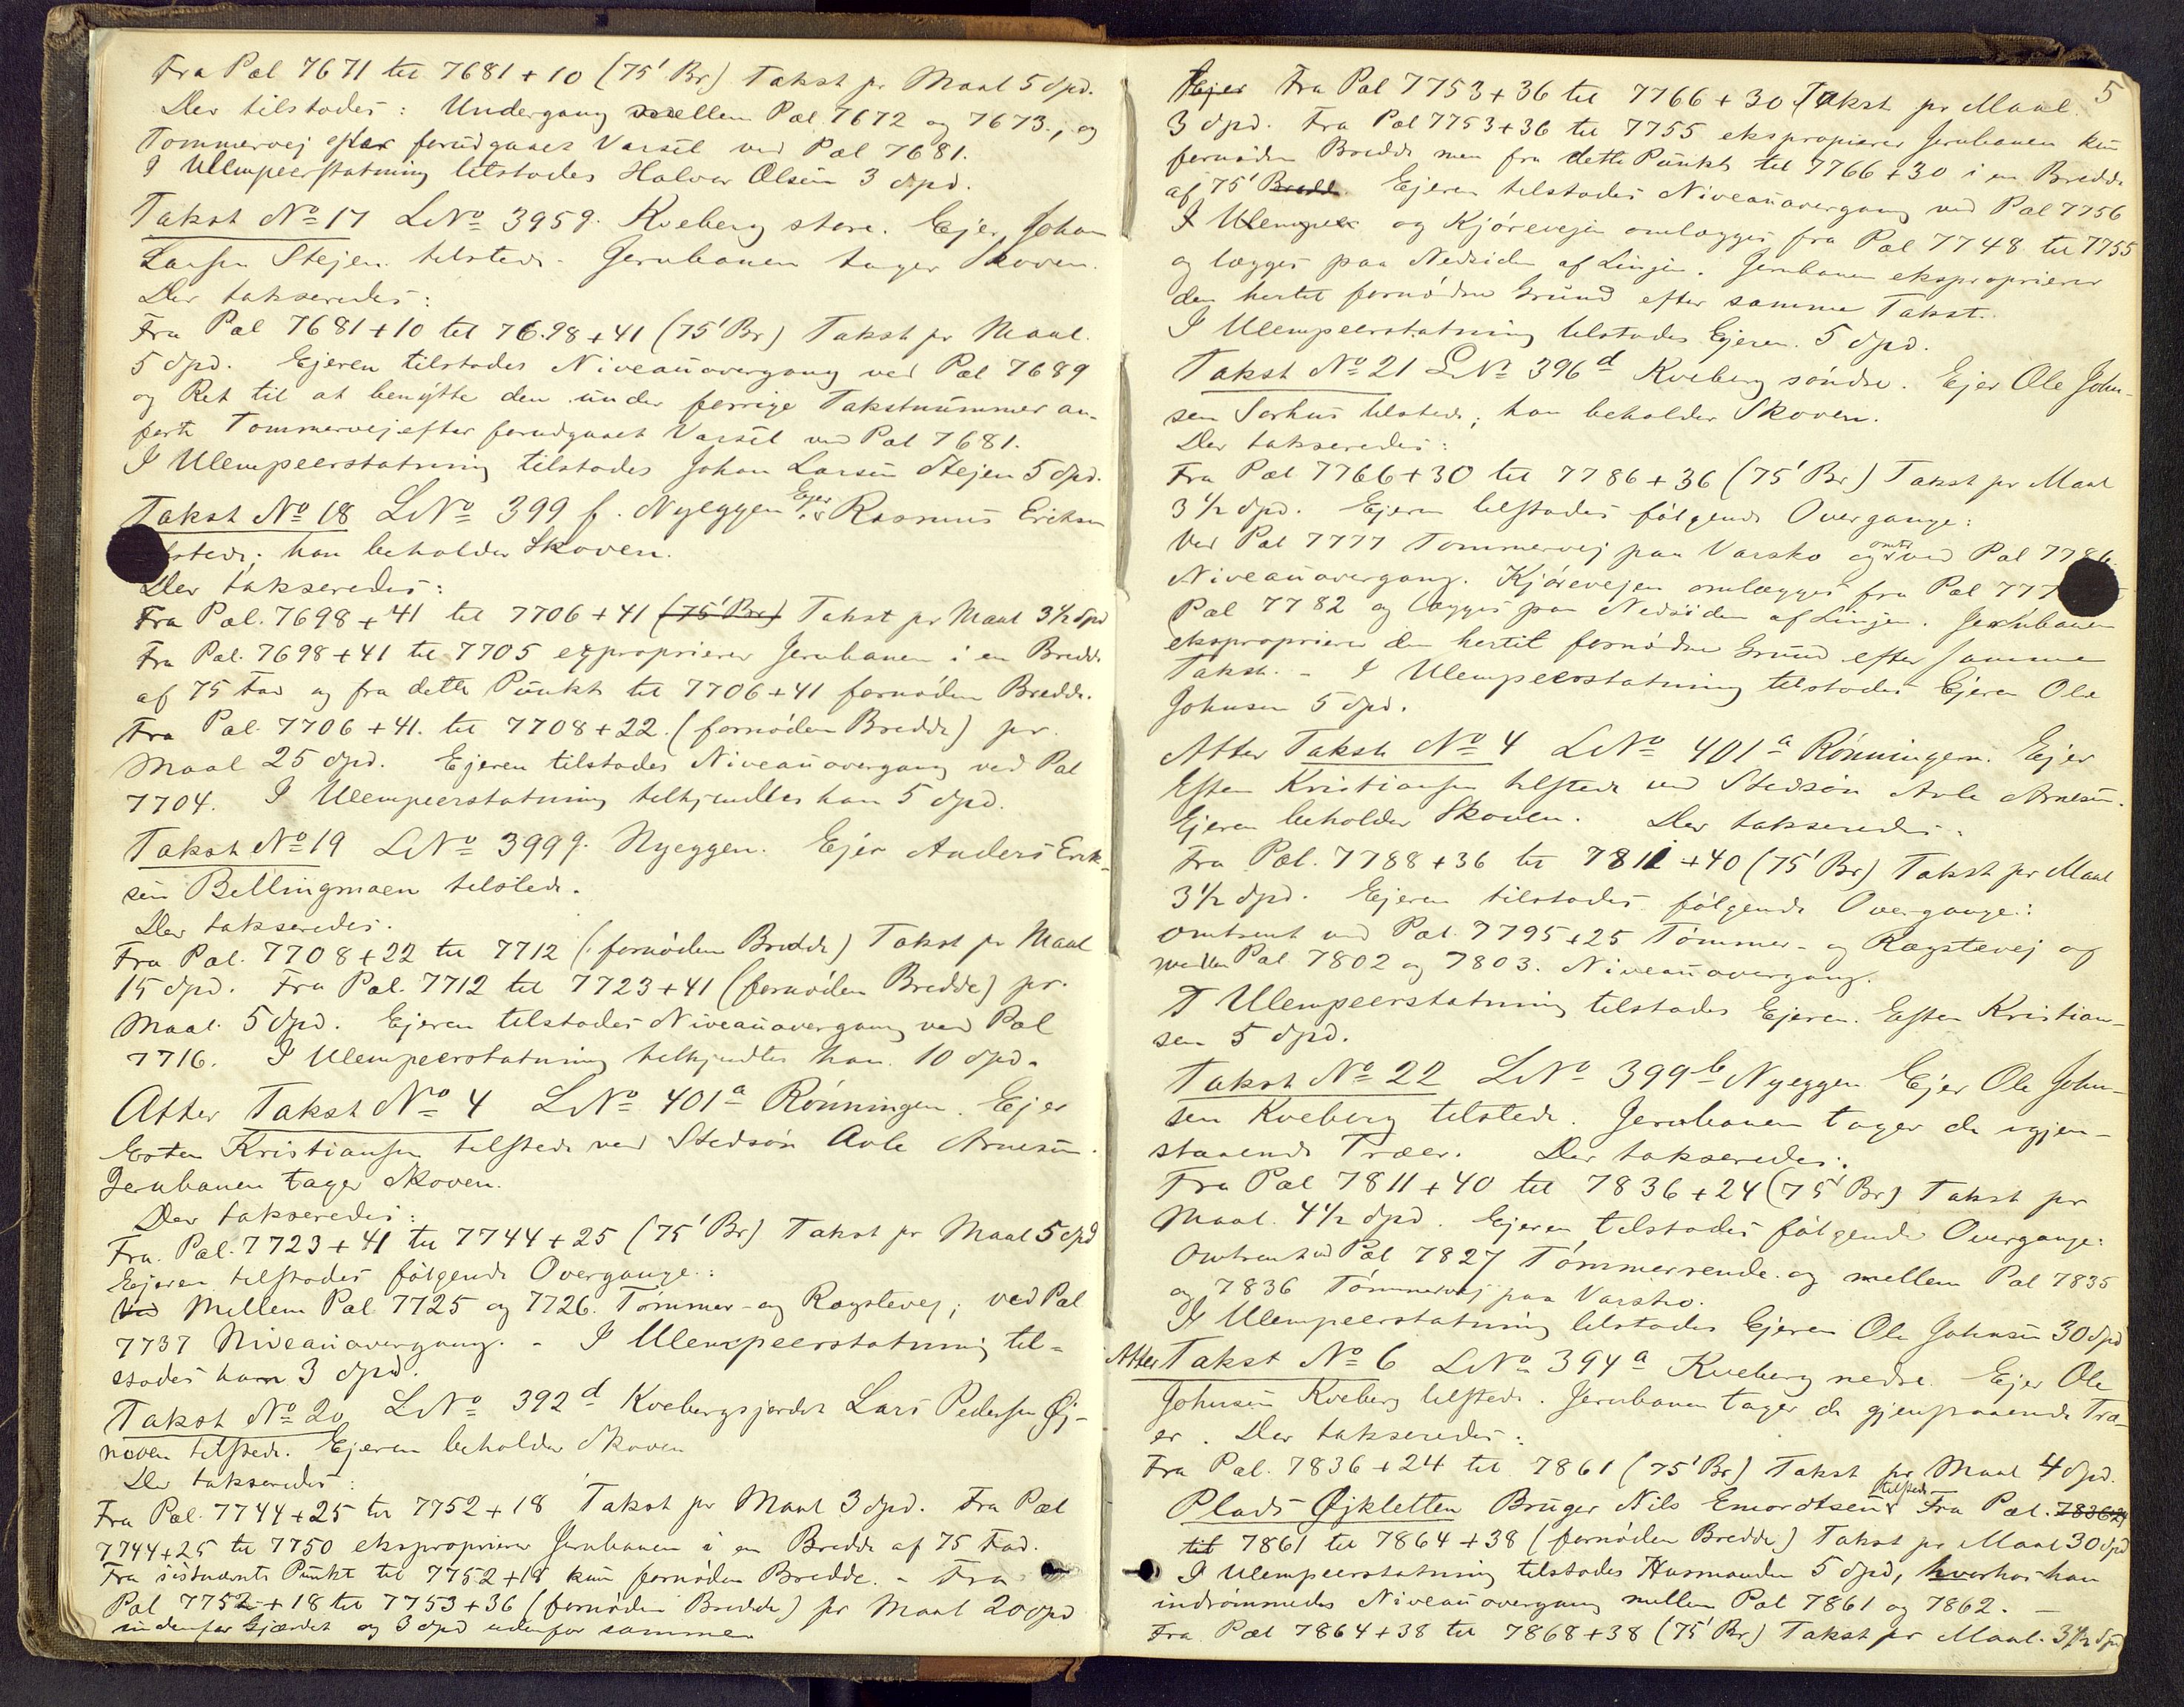 Fra Pæl 7671 til 7681 + 10 (75' Br) Takst pr Maal 5 Spd.
Der tilstodes: Undergang mellem Pæl 7672 og 7673., og
Tømmervej efter forudgaaet Varsel ved Pæl 7681.
I Ulempeerstatning tilstodes Halvor Olsen 3 Spd.
Takst No 17 LNo 395g. Kveberg store. Ejer Johan
Larsen Stejen tilstede - Jernbanen tager Skoven.
Der takseredes:
Fra Pæl 7681 + 10 til 7698 + 41 (75' Br) Takst pr Maal
5 Spd. Ejeren tilstodes Niveauovergang ved Pæl 7689
og Ret til at benytte den under forrige Takstnummer an-
førte Tømmervej efter forudgaaet Varsel ved Pæl 7681.
I Ulempeerstatning tilstodes Johan Larsen Stejen 5 Spd.
Takst No 18 LNo 399 f. Nyeggen Ejer Rasmus Eriksen
lstede; han beholder Skoven.
Der takseredes:
Fra Pæl. 7698 + 41 til 7706 + 41 (75' Br) Takst pr Maal 3½ Spd
Fra Pæl. 7698 + 41 til 7705 exproprierer Jernbanen i en Bredde
af 75 Fod og fra dette Punkt til 7706 + 41 fornøden Bredde.
Fra Pæl 7706 + 41. til 7708 + 22. (fornøden Bredde) pr.
Maal 25 Spd. Ejeren tilstodes Niveauovergang ved Pæl
7704. I Ulempeerstatning tilkjendtes han 5 Spd.
Takst No 19 LNo 399g. Nyeggen. Ejer Anders Erik-
sen Bellingmoen tilstede.
Der takseredes.
Fra Pæl. 7708 + 22 til 7712 (fornøden Bredde) Takst pr Maal
15 Spd. Fra Pæl. 7712 til 7723 + 41 (fornøden Bredde) pr.
Maal. 5 Spd. Ejeren tilstodes Niveauovergang ved Pæl
7716. I Ulempeerstatning tilkjendtes han. 10 Spd.
Atter Takst No 4 LNo 401a Rønningen. Ejer
Esten Kristiansen tilstede ved Stedsøn Avle Arnesen.
Jernbanen tager Skoven.
Der takseredes:
Fra. Pæl. 7723 + 41 til 7744 + 25 (75' Br) Takst pr Maal 5 Spd
Ejeren tilstodes følgende Overgange.:
Ved Mellem Pæl 7725 og 7726. Tømmer- og Ragstevej; ved Pæl
7737 Niveauovergang. - I Ulempeerstatning til-
stodes ham 3 Spd.
Takst No 20 LNo 392d Kvebergsjordet Lars Pedersen Øj-
moen tilstede. Ejeren beholder Skoven
Der takseredes:
Fra Pæl. 7744 + 25 til 7752 + 18 Takst pr Maal 3 Spd. Fra Pæl
7744 + 25 til 7750 eksproprierer Jernbanen i en Bredde af 75 Fod.
Fra sidstnævnte Punkt til 7752 + 18 kun fornøden Bredde. - Fra
Pæl 7752 + 18 til 7753 + 36 (fornøden Bredde) pr Maal 20 Spd
indenfor Gjærdet og 3 Spd udenfor samme
5
Ejer Fra Pæl 7753 + 36 til 7766 + 30 Takst pr Maal
3 Spd. Fra Pæl 7753 + 36 til 7755 eksproprierer Jernbanen kun
fornøden Bredde men fra dette Punkt til 7766 + 30 i en Bredde
af 75' Bredde. Ejeren tilstodes Niveauovergang ved Pæl 7756
I Ulemper og Kjørevejen omlægges fra Pæl 7748 til 7755
og lægges paa Nedsiden af Linjen. Jernbanen eksproprierer
den hertil fornødne Grund efter samme Takst.
I Ulempeerstatning tilstodes Ejeren. 5 Spd.
Takst No 21 LNo 396d Kveberg søndre. Ejer Ole John-
sen Sorhus tilstede; han beholder Skoven.
Der takseredes:
Fra Pæl 7766 + 30 til 7786 + 36 (75' Br) Takst pr Maal
3½ Spd. Ejeren tilstodes følgende Overgange:
Ved Pæl 7777 Tømmervej paa Varsko og omtr ved Pæl 7786
Niveauovergang. Kjørevejen omlægges fra Pæl 777
Pæl 7782 og lægges paa Nedsiden af Linjen. Jernbanen
eksproprierer den hertil fornødne Grund efter samme
Takst. - I Ulempeerstatning tilstodes Ejeren Ole
Johnsen 5 Spd.
Atter Takst No 4 LNo 401a Rønningen. Ejer
Esten Kristiansen tilstede ved Stedsøn Avle Arnesen.
Ejeren beholder Skoven. Der takseredes:
Fra Pæl. 7788 + 36 til 7811 + 40 (75' Br) Takst pr Maal
3½ Spd. Ejeren tilstodes følgende Overgange.:
omtrent ved Pæl 7795 + 25 Tømmer- og Ragstevej og
mellem Pæl 7802 og 7803. Niveauovergang.
I Ulempeerstatning tilstodes Ejeren. Esten Kristian-
sen 5 Spd.
Takst No 22 LNo 399b Nyeggen Ejer Ole John-
sen Kveberg tilstede. Jernbanen tager de igjen-
staaende Træer. Der takseredes:
Fra Pæl 7811 + 40 til 7836 + 24 (75' Br) Takst pr
Maal. 4½ Spd. Ejeren tilstodes følgende Overgange:
Omtrent ved Pæl 7827 Tømmerrende og mellem Pæl 7835
og 7836 Tømmervej paa Varsko.
I Ulempeerstatning tilstodes Ejeren Ole Johnsen 30 Spd
Atter Takst No 6 LNo 394a Kveberg nedre. Ejer Ole
Johnsen Kveberg tilstede. Jernbanen tager de gjenstaaende Træ-
er. Der takseredes:
Fra Pæl. 7836 + 24 til 7861 (75' Br) Takst pr Maal 4 Spd.
Plads Øjkletten Bruger Nils Emordtsen tilstede Fra Pæl. 7836+24
til 7861 til 7864 + 38 (fornøden Bredde) Takst pr Maal 30 Spd
I Ulempeerstatning tilstodes Husmanden 5 Spd, hvorhos han
indrømmedes Niveauovergang mellem Pæl 7861 og 7862. -
Fra Pæl 7864 + 38 til 7868 + 38 (75' Br) Takst pr Maal. 3½ Spd